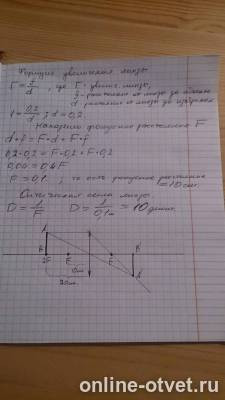 Формула увеличения линзы
Г = f/d, где Г - увелич. линзы,
f - расстояние от линзы до
d - расстояние от линзы до
1 = 0,2/d; d = 0,2
Находим фокусное расстояние F
d * f = F * d + F * f
0,2 · 0,2 = F · 0,2 + F · 0,2
0,04 = 0,4F
F = 0,1, то есть фокусное расстояние
= 10 см.
Оптическая сила линзы
D = 1/F D = 1/0,1м = 10 дптр.
A
B 2F F F B'
A'
20см.
online-otvet.ru